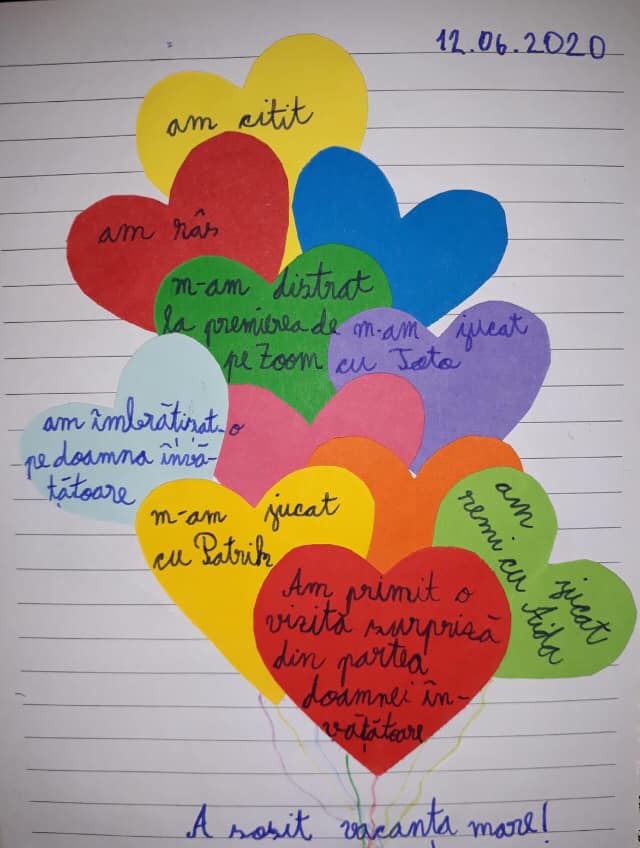 12.06.2020
am citit
am râs
m-am distrat
la premierea de
pe Zoom
m-am jucat
cu Tata
am îmbrățișat-o
pe doamna învă-
țătoare
m-am jucat
cu Patrik
am jucat
remi cu Aida
Am primit o
vizită surprisă
din partea
doamnei în-
vățătoare
A sosit vacanța mare!